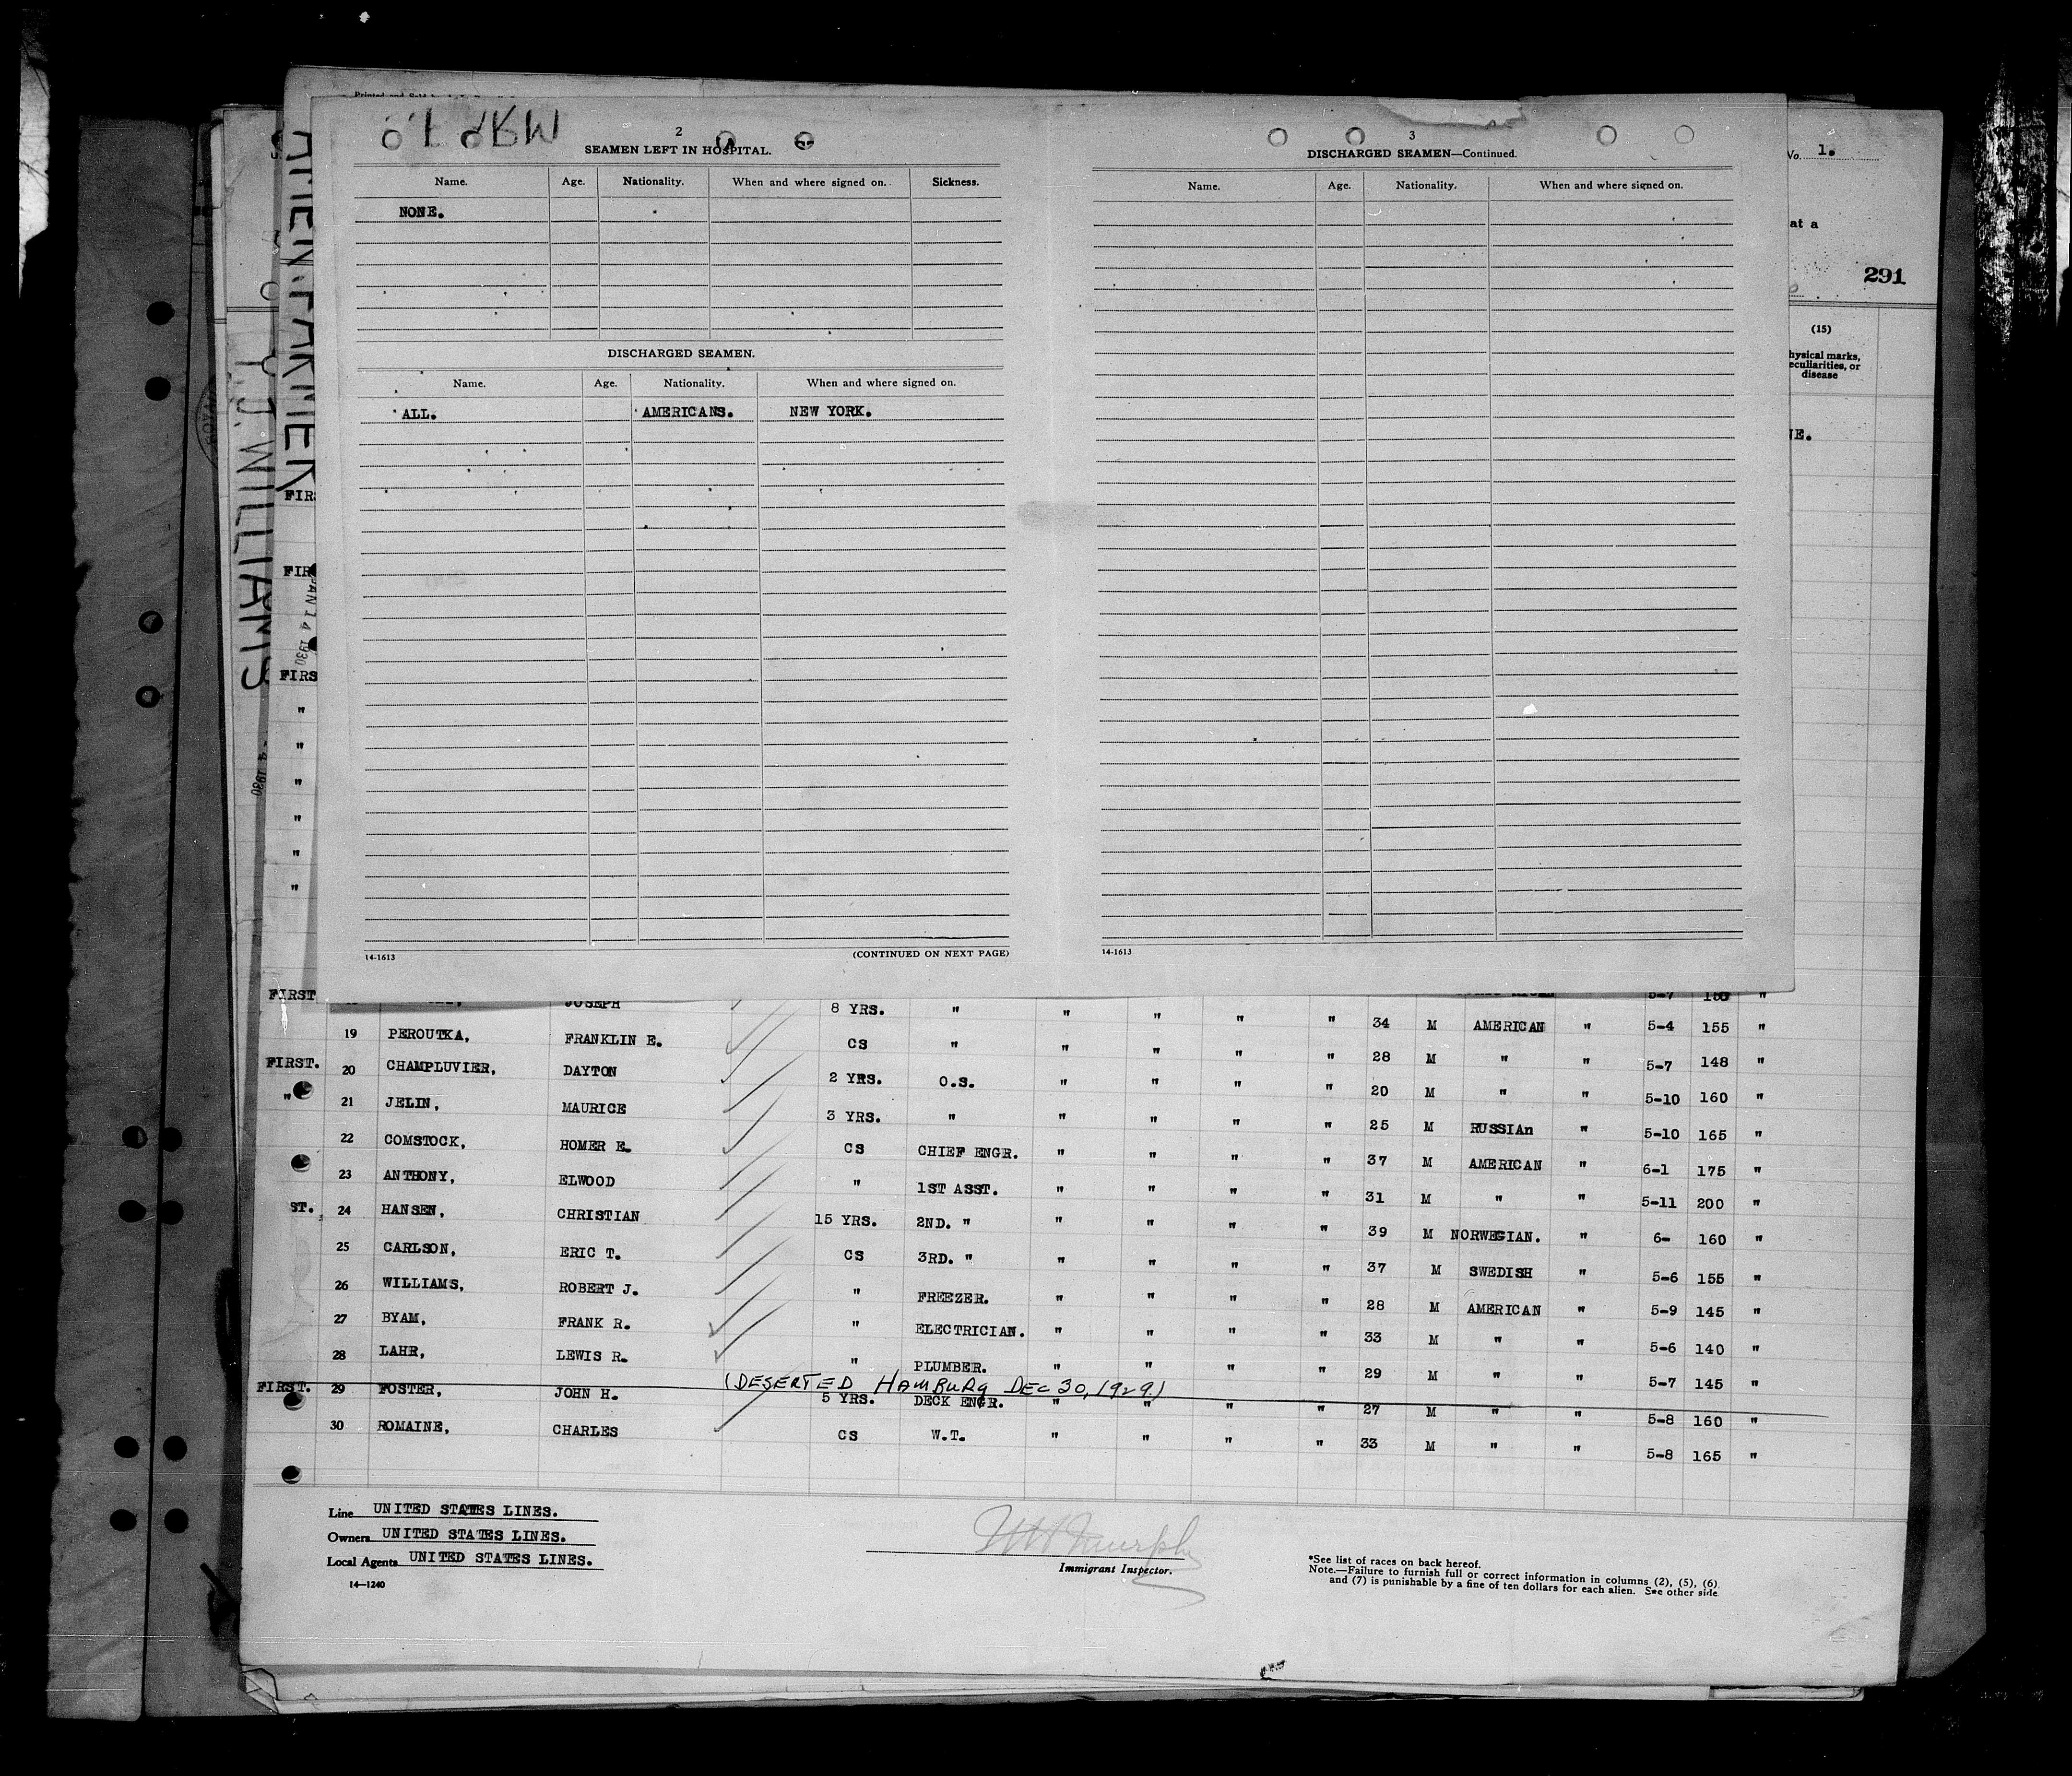 2
SEAMEN LEFT IN HOSPITAL.
Name. Age. Nationality. When and where signed on. Sickness.
NONE.
DISCHARGED SEAMEN.
Name. Age. Nationality. When and where signed on.
ALL. AMERICANS. NEW YORK.
14-1613 (CONTINUED ON NEXT PAGE)
3
DISCHARGED SEAMEN—Continued.
Name. Age. Nationality. When and where signed on.
14-1613
No. 1.
at a
291
(15)
hysical marks,
eculiarities, or
disease
NE.
T.J. WILLIAMS
JAN 14 1930
FIRS
"
"
"
"
"
"
FIRST JOSEPH 8 YRS. " " " " " 34 M AMERICAN " 5-4 155 "
19 PEROUTKA, FRANKLIN E. CS " " " " " 28 M " " 5-7 148 "
FIRST. 20 CHAMPLUVIER, DAYTON 2 YRS. O.S. " " " " 20 M " " 5-10 160 "
" 21 JELIN, MAURICE 3 YRS. " " " " " 25 M RUSSIAn " 5-10 165 "
22 COMSTOCK, HOMER E. CS CHIEF ENGR. " " " " 37 M AMERICAN " 6-1 175 "
23 ANTHONY, ELWOOD " 1ST ASST. " " " " 31 M " " 5-11 200 "
ST. 24 HANSEN, CHRISTIAN 15 YRS. 2ND. " " " " " 39 M NORWEGIAN. " 6- 160 "
25 CARLSON, ERIC T. CS 3RD. " " " " " 37 M SWEDISH " 5-6 155 "
26 WILLIAMS, ROBERT J. " FREEZER. " " " " 28 M AMERICAN " 5-9 145 "
27 BYAM, FRANK R. " ELECTRICIAN. " " " " 33 M " " 5-6 140 "
28 LAHR, LEWIS R. " PLUMBER. " " " " 29 M " " 5-7 145 "
(DESERTED HAMBURG DEC 30, 1929.)
FIRST. 29 FOSTER, JOHN H. 5 YRS. DECK ENGR. " " " " 27 M " " 5-8 160 "
30 ROMAINE, CHARLES CS W.T. " " " " 33 M " " 5-8 165 "
Line UNITED STATES LINES.
Owners UNITED STATES LINES.
Local Agents UNITED STATES LINES.
14—1240
Immigrant Inspector.
*See list of races on back hereof.
Note.—Failure to furnish full or correct information in columns (2), (5), (6)
and (7) is punishable by a fine of ten dollars for each alien. See other side